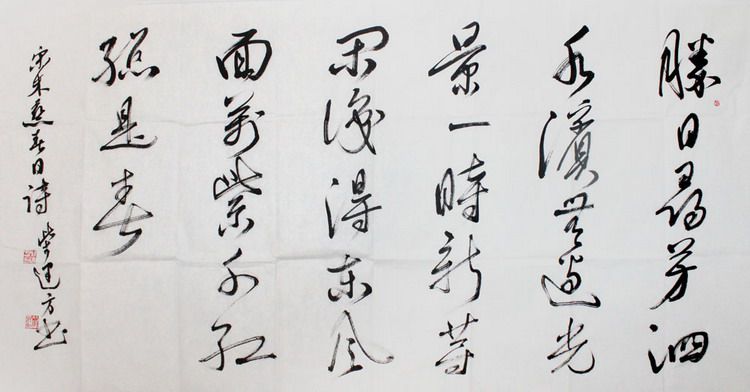 勝日尋芳泗
水濱無邊光
景一時新等
閑識得東風
面萬紫千紅
總是春
宋朱熹春日詩
方书